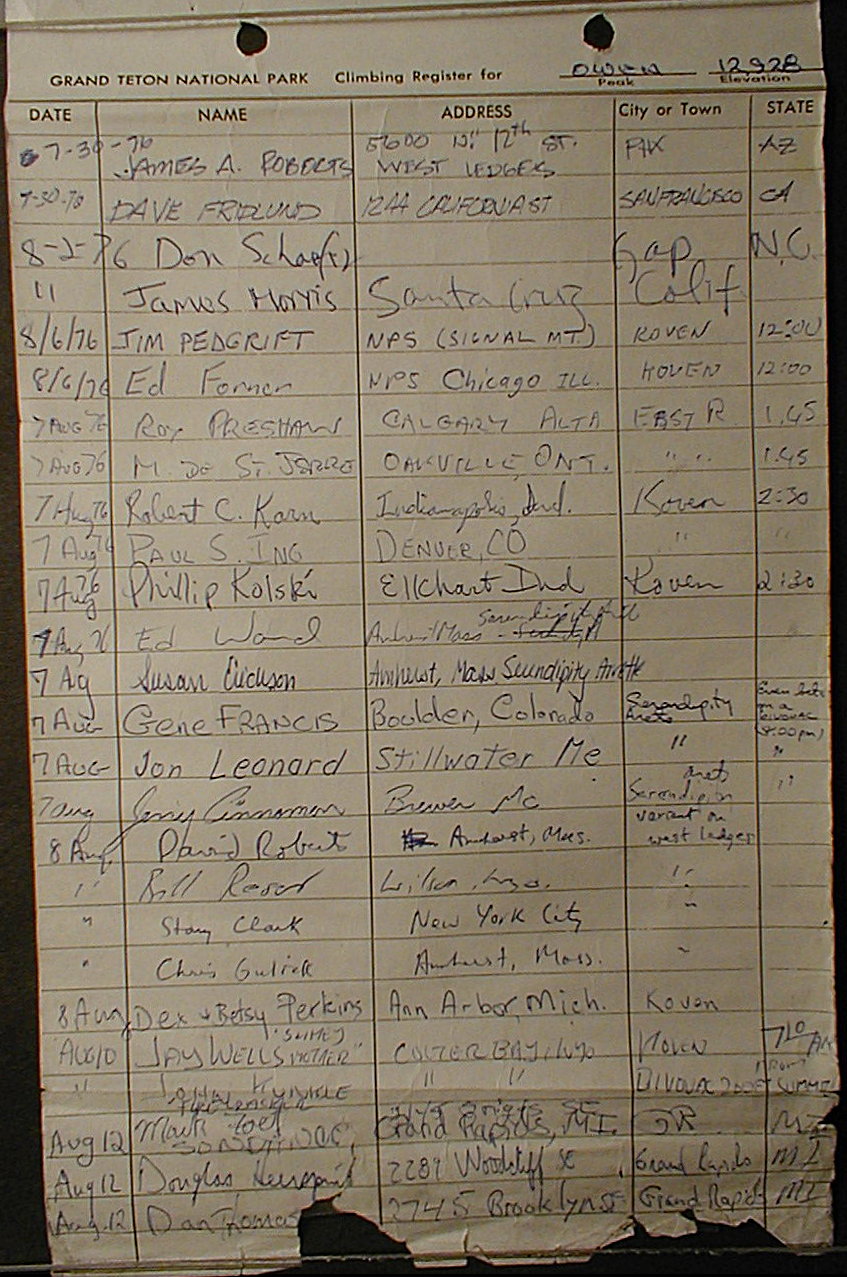 GRAND TETON NATIONAL PARK Climbing Register for OWEN 12928
Peak Elevation
DATE NAME ADDRESS City or Town STATE
7-30-76 JAMES A. ROBERTS 5600 N. 12th ST. AZ
WEST LEDGES
7-30-76 DAVE FRIDLUND 1244 CALIFORNIA ST SANFRANCISCO CA
8-2-76 Don Gap N.C.
" James Morris Santa Cruz Calif
8/6/76 JIM PEDGRIFT NPS (SIGNAL MT.) KOVEN 12:00
8/6/76 Ed NPS Chicago ILL. KOVEN 12:00
7 AUG 76 Roy CALGARY ALTA EAST R 1.45
7 AUG 76 M. DE ST. OAKVILLE, ONT. " " 1.45
7 Aug 76 Robert C. Karn Indianapolis, Ind. Koven 2:30
7 Aug 76 PAUL S. ING DENVER, CO " "
7 Aug 76 Phillip Kolski Elkhart Ind Koven 2:30
7 Aug 76 Ed Ward Amherst Mass Serendipity
7 Ag Susan Erickson Amherst, Mass Serendipity Arette
7 AUG Gene FRANCIS Boulder, Colorado Serendipity Arete on a BIVOUAC (8:00pm)
7 AUG Jon Leonard Stillwater Me " "
7 aug Jerry Cinnamon Brewer Me Serendipity arete "
8 Aug. David Roberts Amherst, Mass. variant on west ledges
" Bill Wilson, Wyo. "
" Clark New York City "
" Chris Gulick Amherst, Mass. "
8 Aug Dex + Betsy Perkins Ann Arbor, Mich. Koven
AUG 10 JAY WELLS COLTER BAY, WYO KOVEN 7:10 AM
" JOHN " " BIVOUAC FROM SUMMIT
Aug 12 Mark Grand Rapids, MI. GR MI
Aug 12 Douglas 2289 Woodcliff SE Grand Rapids MI
Aug. 12 Dan Thomas 2745 Brooklyn SE Grand Rapids MI